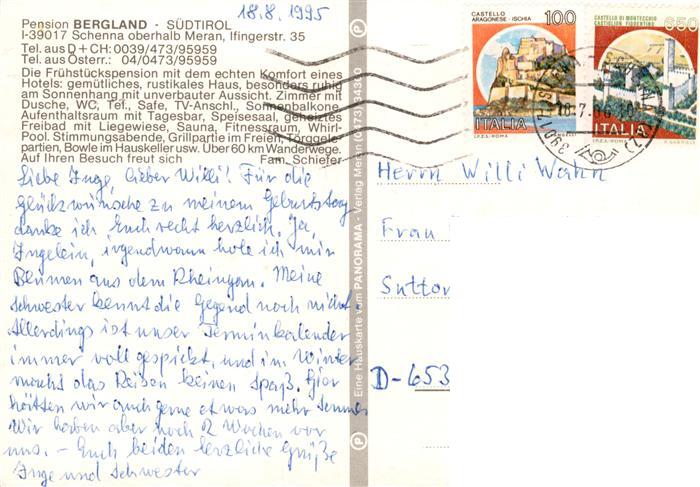 18.8.1995
Pension BERGLAND - SÜDTIROL
I-39017 Schenna oberhalb Meran, Ifingerstr. 35
Tel. aus D + CH: 0039/473/95959
Tel. aus Österr.: 04/0473/95959
Die Frühstückspension mit dem echten Komfort eines
Hotels: gemütliches, rustikales Haus, besonders ruhig
am Sonnenhang mit unverbauter Aussicht. Zimmer mit
Dusche, WC, Tef., Safe, TV-Anschl., Sonnenbalkone,
Aufenthaltsraum mit Tagesbar, Speisesaal, geheiztes
Freibad mit Liegewiese, Sauna, Fitnessraum, Whirl-
Pool. Stimmungsabende, Grillpartie im Freien, Törggele-
partien, Bowle im Hauskeller usw. Über 60 km Wanderwege.
Auf Ihren Besuch freut sich Fam. Schiefer
Liebe Inge, lieber Willi! Für die
Glückwünsche zu meinem Geburtstag
danke ich Euch recht herzlich. Ja,
Ingelein, irgendwann hole ich mir
Blumen aus dem Rheingau. Meine
Schwester kennt die Gegend noch nicht.
Allerdings ist unser Terminkalender
immer voll gespickt, und im Winter
macht das Reisen keinen Spaß. Hier
hätten wir auch gerne etwas mehr Sonne.
Wir haben aber noch 2 Wochen vor
uns. – Euch beiden herzliche Grüße
Inge und Schwester
Eine Hauskarte vom PANORAMA - Verlag Meran
CASTELLO
ARAGONESE - ISCHIA
100
ITALIA
I.P.Z.S. - ROMA
CASTELLO DI MONTECCHIO
CASTIGLION FIORENTINO
650
ITALIA
I.P.Z.S. - ROMA
Herrn Willi Wahn
Frau
Suttor
D-653